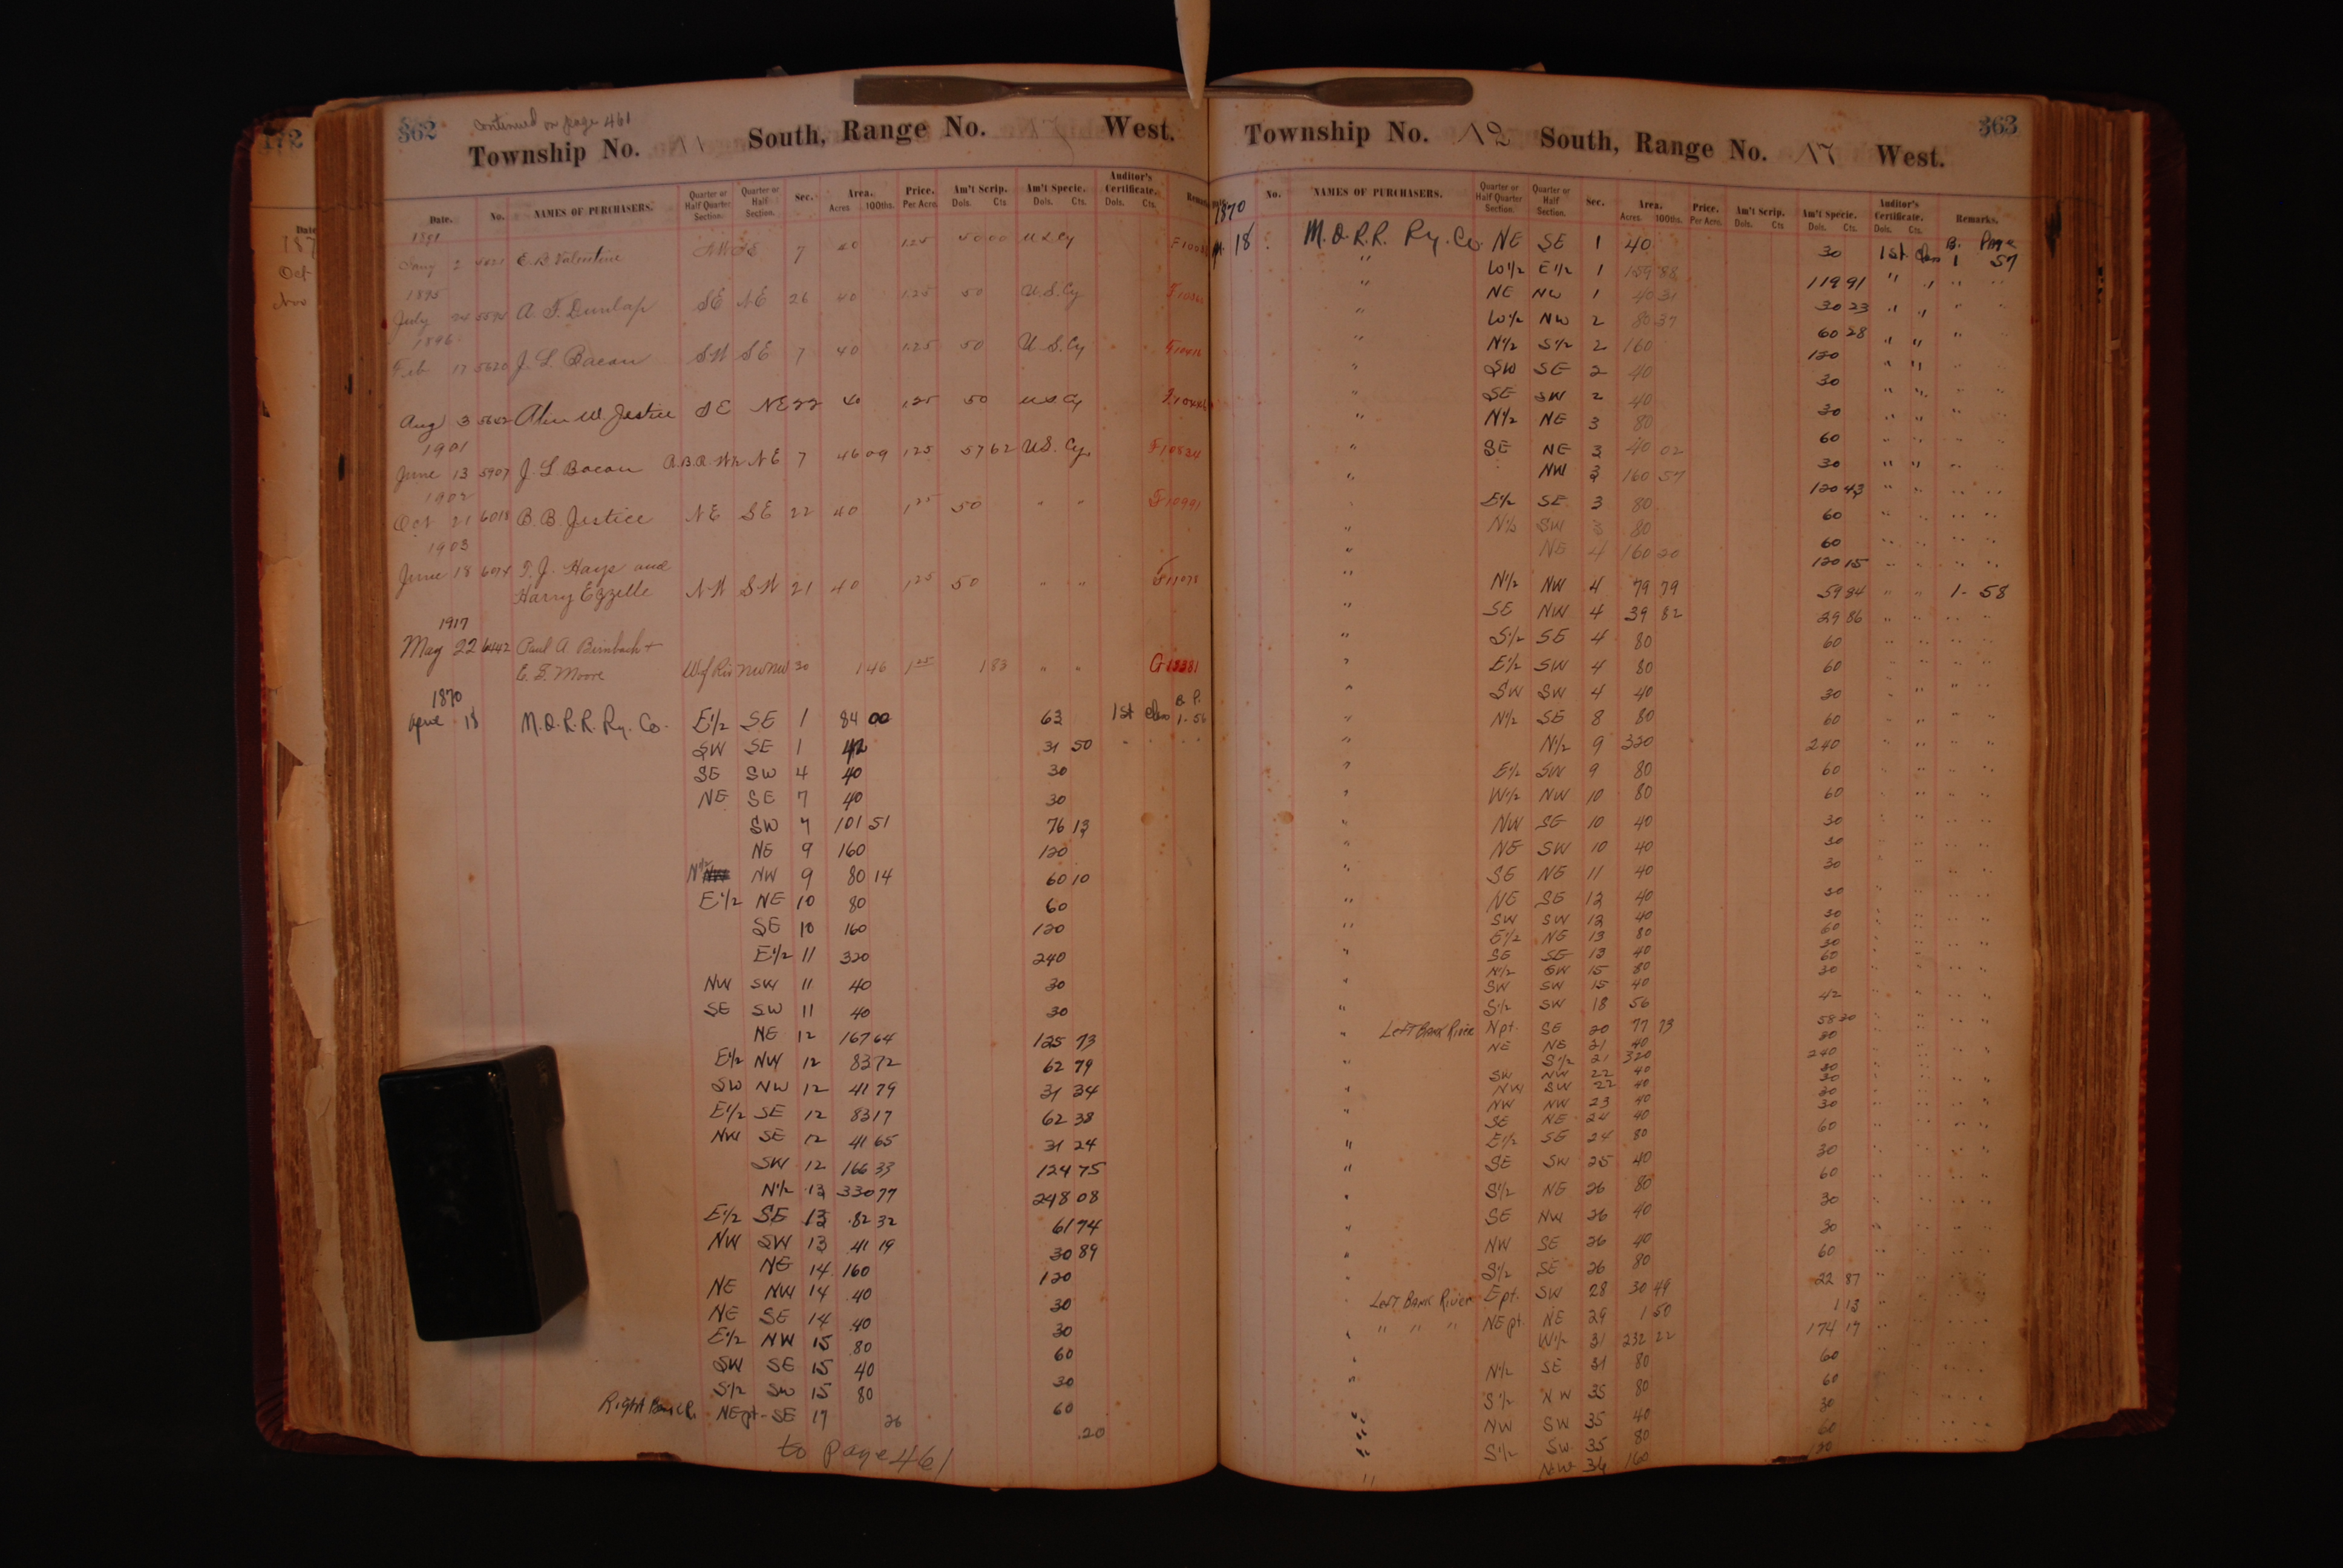 172
Date
187
Oct
Nov
362 continued on page 461
Township No. 11 South, Range No. West.
Date. No. NAMES OF PURCHASERS. Quarter or Half Quarter Section. Quarter or Half Section. Sec. Area. Acres 100ths. Price. Per Acre. Am't Scrip. Dols. Cts. Am't Specie. Dols. Cts. Auditor's Certificate. Dols. Cts.
1891
2 E. B. Valentine 7 40 1.25 50 00 U S Cy
1895
July 24 A. F. Dunlap SE NE 26 40 1.25 50 U.S. Cy
1896
Feb 17 5620 J. L. Bacon SW SE 7 40 1.25 50 U.S. Cy
Aug 3 5652 W. Justice SE NE 22 40 1.25 50 U S Cy
1901
June 13 5907 J. L. Bacon NE 7 46 09 1.25 57 62 U.S. Cy. F10834
1902
Oct 21 6018 B. B. Justice NE SE 22 40 1 25 50 " " F10991
1903
June 18 6074 T. J. Hays and
Harry Ezzelle NW SW 21 40 1 25 50 " " F11078
1917
May 22 6442 Paul A Birnbach +
E. L. Moore W of Riv NW NW 30 1 46 1 25 1 83 " "
1870 B. P.
April 18 M.O.R.R. Ry. Co. E1/2 SE 1 84 00 63 1st Class 1-56
SW SE 1 42 31 50 " " " "
SE SW 4 40 30
NE SE 7 40 30
SW 7 101 51 76 13
NE 9 160 120
N1/2 NW 9 80 14 60 10
E1/2 NE 10 80 60
SE 10 160 120
E1/2 11 320 240
NW SW 11 40 30
SE SW 11 40 30
NE 12 167 64 125 73
E1/2 NW 12 83 72 62 79
SW NW 12 41 79 31 34
E1/2 SE 12 83 17 62 38
NW SE 12 41 65 31 24
SW 12 166 33 124 75
N1/2 13 330 77 248 08
E1/2 SE 13 82 32 61 74
NW SW 13 41 19 30 89
NE 14 160 120
NE NW 14 40 30
NE SE 14 40 30
E1/2 NW 15 80 60
SW SE 15 40 30
S1/2 SW 15 80 60
Right Bank R. NE pt- SE 17 26 .20
to page 461
363
Township No. 12 South, Range No. 17 West.
No. NAMES OF PURCHASERS. Quarter or Half Quarter Section. Quarter or Half Section. Sec. Area. Acres. 100ths. Price. Per Acre. Am't Scrip. Dols. Cts. Am't Specie. Dols. Cts. Auditor's Certificate. Dols. Cts. Remarks.
1870 B. Page
18 M.O.R.R. Ry. Co. NE SE 1 40 30 1st Class 1 57
" W1/2 E1/2 1 159 88 119 91 " " " "
" NE NW 1 40 31 30 23 " " " "
" W1/2 NW 2 80 37 60 28 " " " "
" N1/2 S1/2 2 160 120 " " " "
" SW SE 2 40 30 " " " "
" SE SW 2 40 30 " " " "
" N1/2 NE 3 80 60 " " " "
" SE NE 3 40 02 30 " " " "
" NW 3 160 57 120 43 " " " "
" E1/2 SE 3 80 60 " " " "
" N1/2 SW 3 80 60 " " " "
" NE 4 160 20 120 15 " " " "
" N1/2 NW 4 79 79 59 84 " " 1- 58
" SE NW 4 39 82 29 86 " " " "
" S1/2 SE 4 80 60 " " " "
" E1/2 SW 4 80 60 " " " "
" SW SW 4 40 30 " " " "
" N1/2 SE 8 80 60 " " " "
" N1/2 9 320 240 " " " "
" E1/2 SW 9 80 60 " " " "
" W1/2 NW 10 80 60 " " " "
" NW SE 10 40 30 " " " "
" NE SW 10 40 30 " " " "
" SE NE 11 40 30 " " " "
" NE SE 12 40 30 " " " "
SW SW 12 40 30 " " " "
E1/2 NE 13 80 60 " " " "
SE SE 13 40 30 " " " "
N1/2 SW 15 80 60 " " " "
SW SW 15 40 30 " " " "
" S1/2 SW 18 56 42 " " " "
" Left Bank River N pt. SE 20 77 73 58 30 " " " "
NE NE 21 40 30 " " " "
" S1/2 21 320 240 " " " "
SW NW 22 40 30 " " " "
NW SW 22 40 30 " " " "
NW NW 23 40 30 " " " "
SE NE 24 40 30 " " " "
" E1/2 SE 24 80 60 " " " "
" SE SW 25 40 30 " " " "
" S1/2 NE 26 80 60 " " " "
" SE NW 26 40 30 " " " "
" NW SE 26 40 30 " " " "
" S1/2 SE 26 80 60 " " " "
Left Bank River E pt. SW 28 30 49 22 87 " " " "
" " " NE pt. NE 29 1 50 1 13 " " " "
" W1/2 31 232 22 174 17 " " " "
" N1/2 SE 31 80 60 " " " "
" S1/2 NW 35 80 60 " " " "
" NW SW 35 40 30 " " " "
" S1/2 SW 35 80 60 " " " "
" NW 36 160 120 " " " "